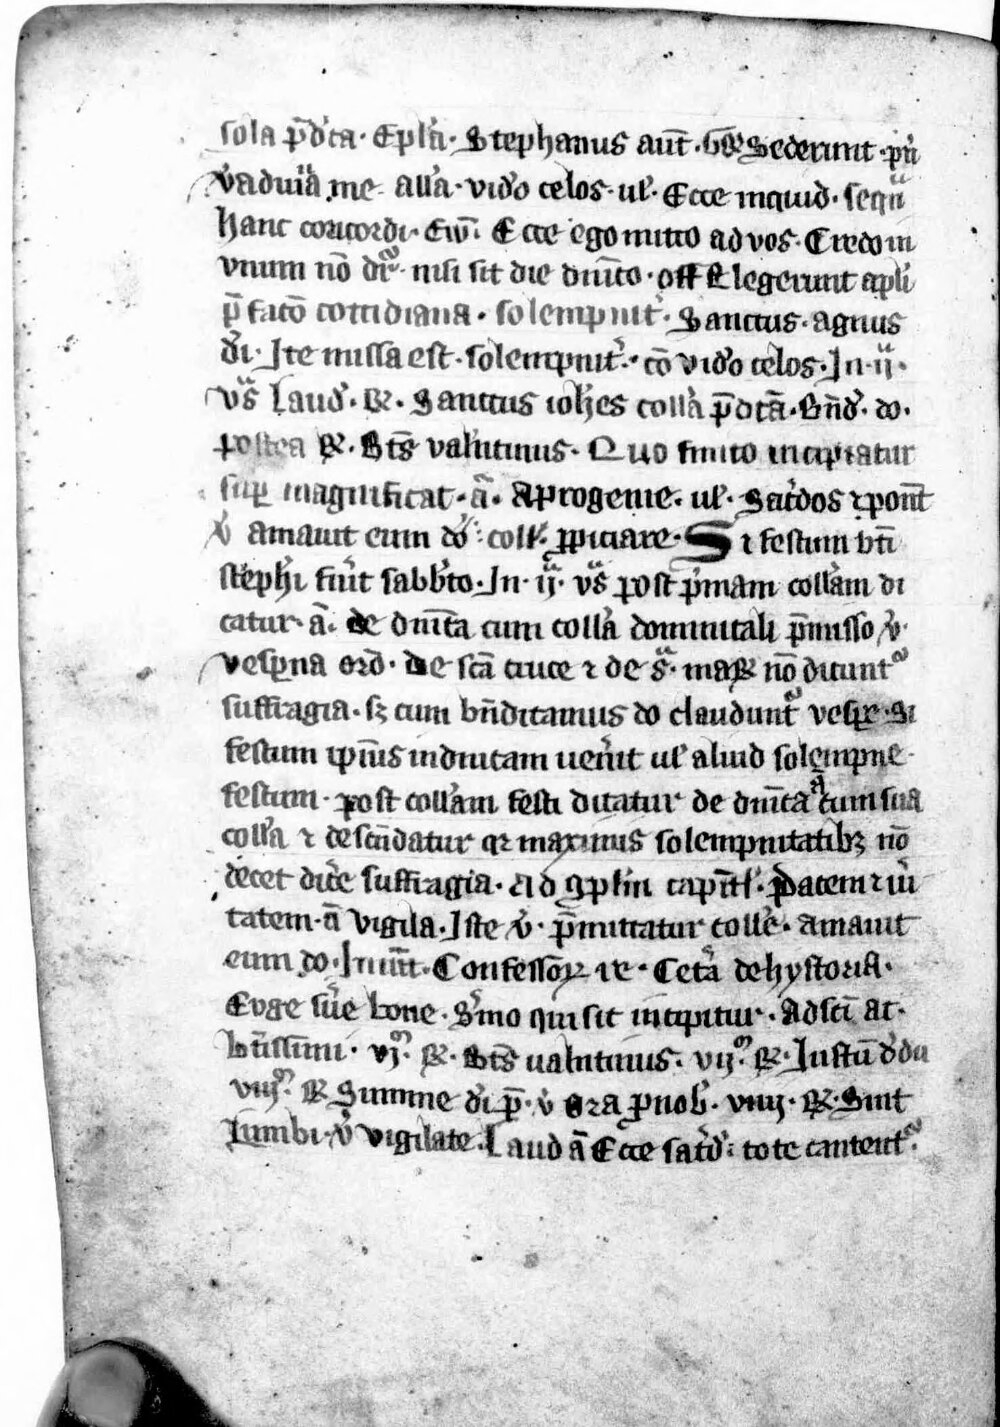 sola p̄dc̃a. Epl̃a. Stephanus aut̃. Gͬ Sederunt. pͥn
v̓ aduiͣua me. all̓a. video celos. ul̓. Ecce inquid. sequͣ
hanc concordi. Ew̄. Ecce ego mitto ad vos. Credo in
vnum nō dr̃. nisi sit die dnĩco. off̃ Elegerunt apl̃i
p̄fatō cottidiana. solempnit̓. Sanctus. agnus
dei. Ite missa est. solempnit̓. cō video celos. In. ii.
vs̃ Laud̓. R. Sanctus ioh̃es coll̓a p̄dc̃ã. Bñd̓. do.
postea R. Bt̃s valentinus. Quo finito incipiatur
sup magnificat. ã. A progenie. ul̓. Sac̓dos ⁊ pont̃
v̓ amauit eum do. coll̓. ꝓpiciare. Si festum bt̃i
steph̃i fũit sabb̓to. In. ij. vs̃ post p̓mam coll̓am di
catur. ã. de dnĩca cum coll̓a dominicali p̄misso v̓.
vespina ord̓. de sc̃a cruce ⁊ de s̃. mar̃ nō dicunt̃
suffragia. sꝫ cum bñdicamus do claudunt̃ vesꝑe. Si
festum ip̃ius in dnicam uen̓it ul̓ aliud solempne
festum. post coll̓am festi dicatur de dnĩca ã cum sua
coll̓a ⁊ descẽdatur qꝛ maximus solempnitatibꝫ nō
decet dic̓e suffragia. Ad ꝯpl̓m capĩtl̓. Pacem ⁊ ũi
tatem. ã vigila. Iste v̓. p̄mittatur coll̓e. Amauit
eum do. Inuit̃. Confessoꝝ re. Cet̓a de hystoria.
Euge sũe bone. S̓mo qui sit incipitur. Ad sc̃i ac
bt̃issimi. vj. R. Bt̃s ualentinus. vij. R. Iustũ dedu
viij. R Summe dei p̄. v̓ Ora ꝓ nob̓. viiij. R. Sint
Lumbi. v̓ vigilate. Laud ã Ecce sac̓d. tote cantent̃.